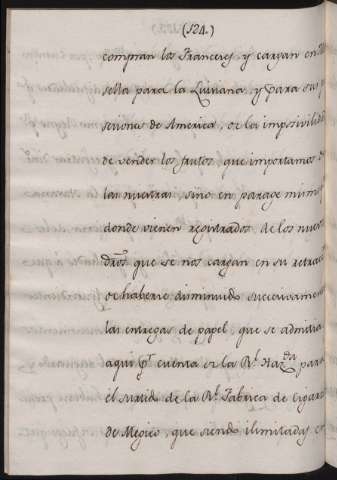 (124.)
compran los Franceses, y cargan en
sella para la Guiana, y para sus
seciones de America, o la imposivilidad
de vender los frutos que importamos
las nuestras, sino en parage mismo
donde vienen registrados de los nuevos
dros. que se nos cargan en su retracto
o haberse disminuido succesivamente
las entregas de papel, que se admitia
aqui pr. cuenta de la Rl. Hazda para
el surtido de la Rl. Fabrica de Cigarros
de Megico, que siendo ilimitadas en